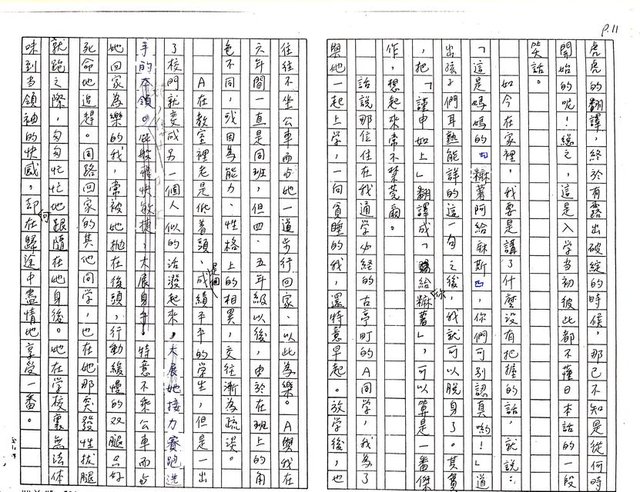 P.11
虎的翻譯,終於有露出破綻的時候,那已不知是從何時
開始的呢!總之,這是入學當初彼此都不懂日本話的一段
笑話。
如今在家裡,我要是講了什麼沒有把握的話,就說:
「這是媽媽的麻薯阿給麻斯,你們可別認真喲!」
出孩子們耳熟能詳的這一句之後,我就可以脫身了。其實這
,把「謹申如上」翻譯成「給麻薯」,可以算是一番傑
作,想起來常不禁莞爾。
話說那位住在我通學必經的古亭町的A同學,我為了
與她一起上學,一向貪睡的我,還特意早起。放學後,也
往往不坐公車而與她一道步行回家,以此為樂。A與我在
六年間一直是同班,但四、五年級以後,由於在班上的角
色不同,或因為能力、性格上的相異,交往漸為疏淡。
A在教室裡老是低著頭,成績平平的學生,但是一出
了校門就變成另一個人似的活潑起來,大展她接力賽跑選
手的本領。 特意不乘公車而與
她回家為樂的我,常被她拋在後頭,行動緩慢的双腿只好
死命地追趕。同路回家的其他同學,也在她那突發性拔腿
就跑之際,匆匆忙忙地跟隨在她身後。她在學校裏無法体
味到當領袖的快感,却在歸途中盡情地享受一番。